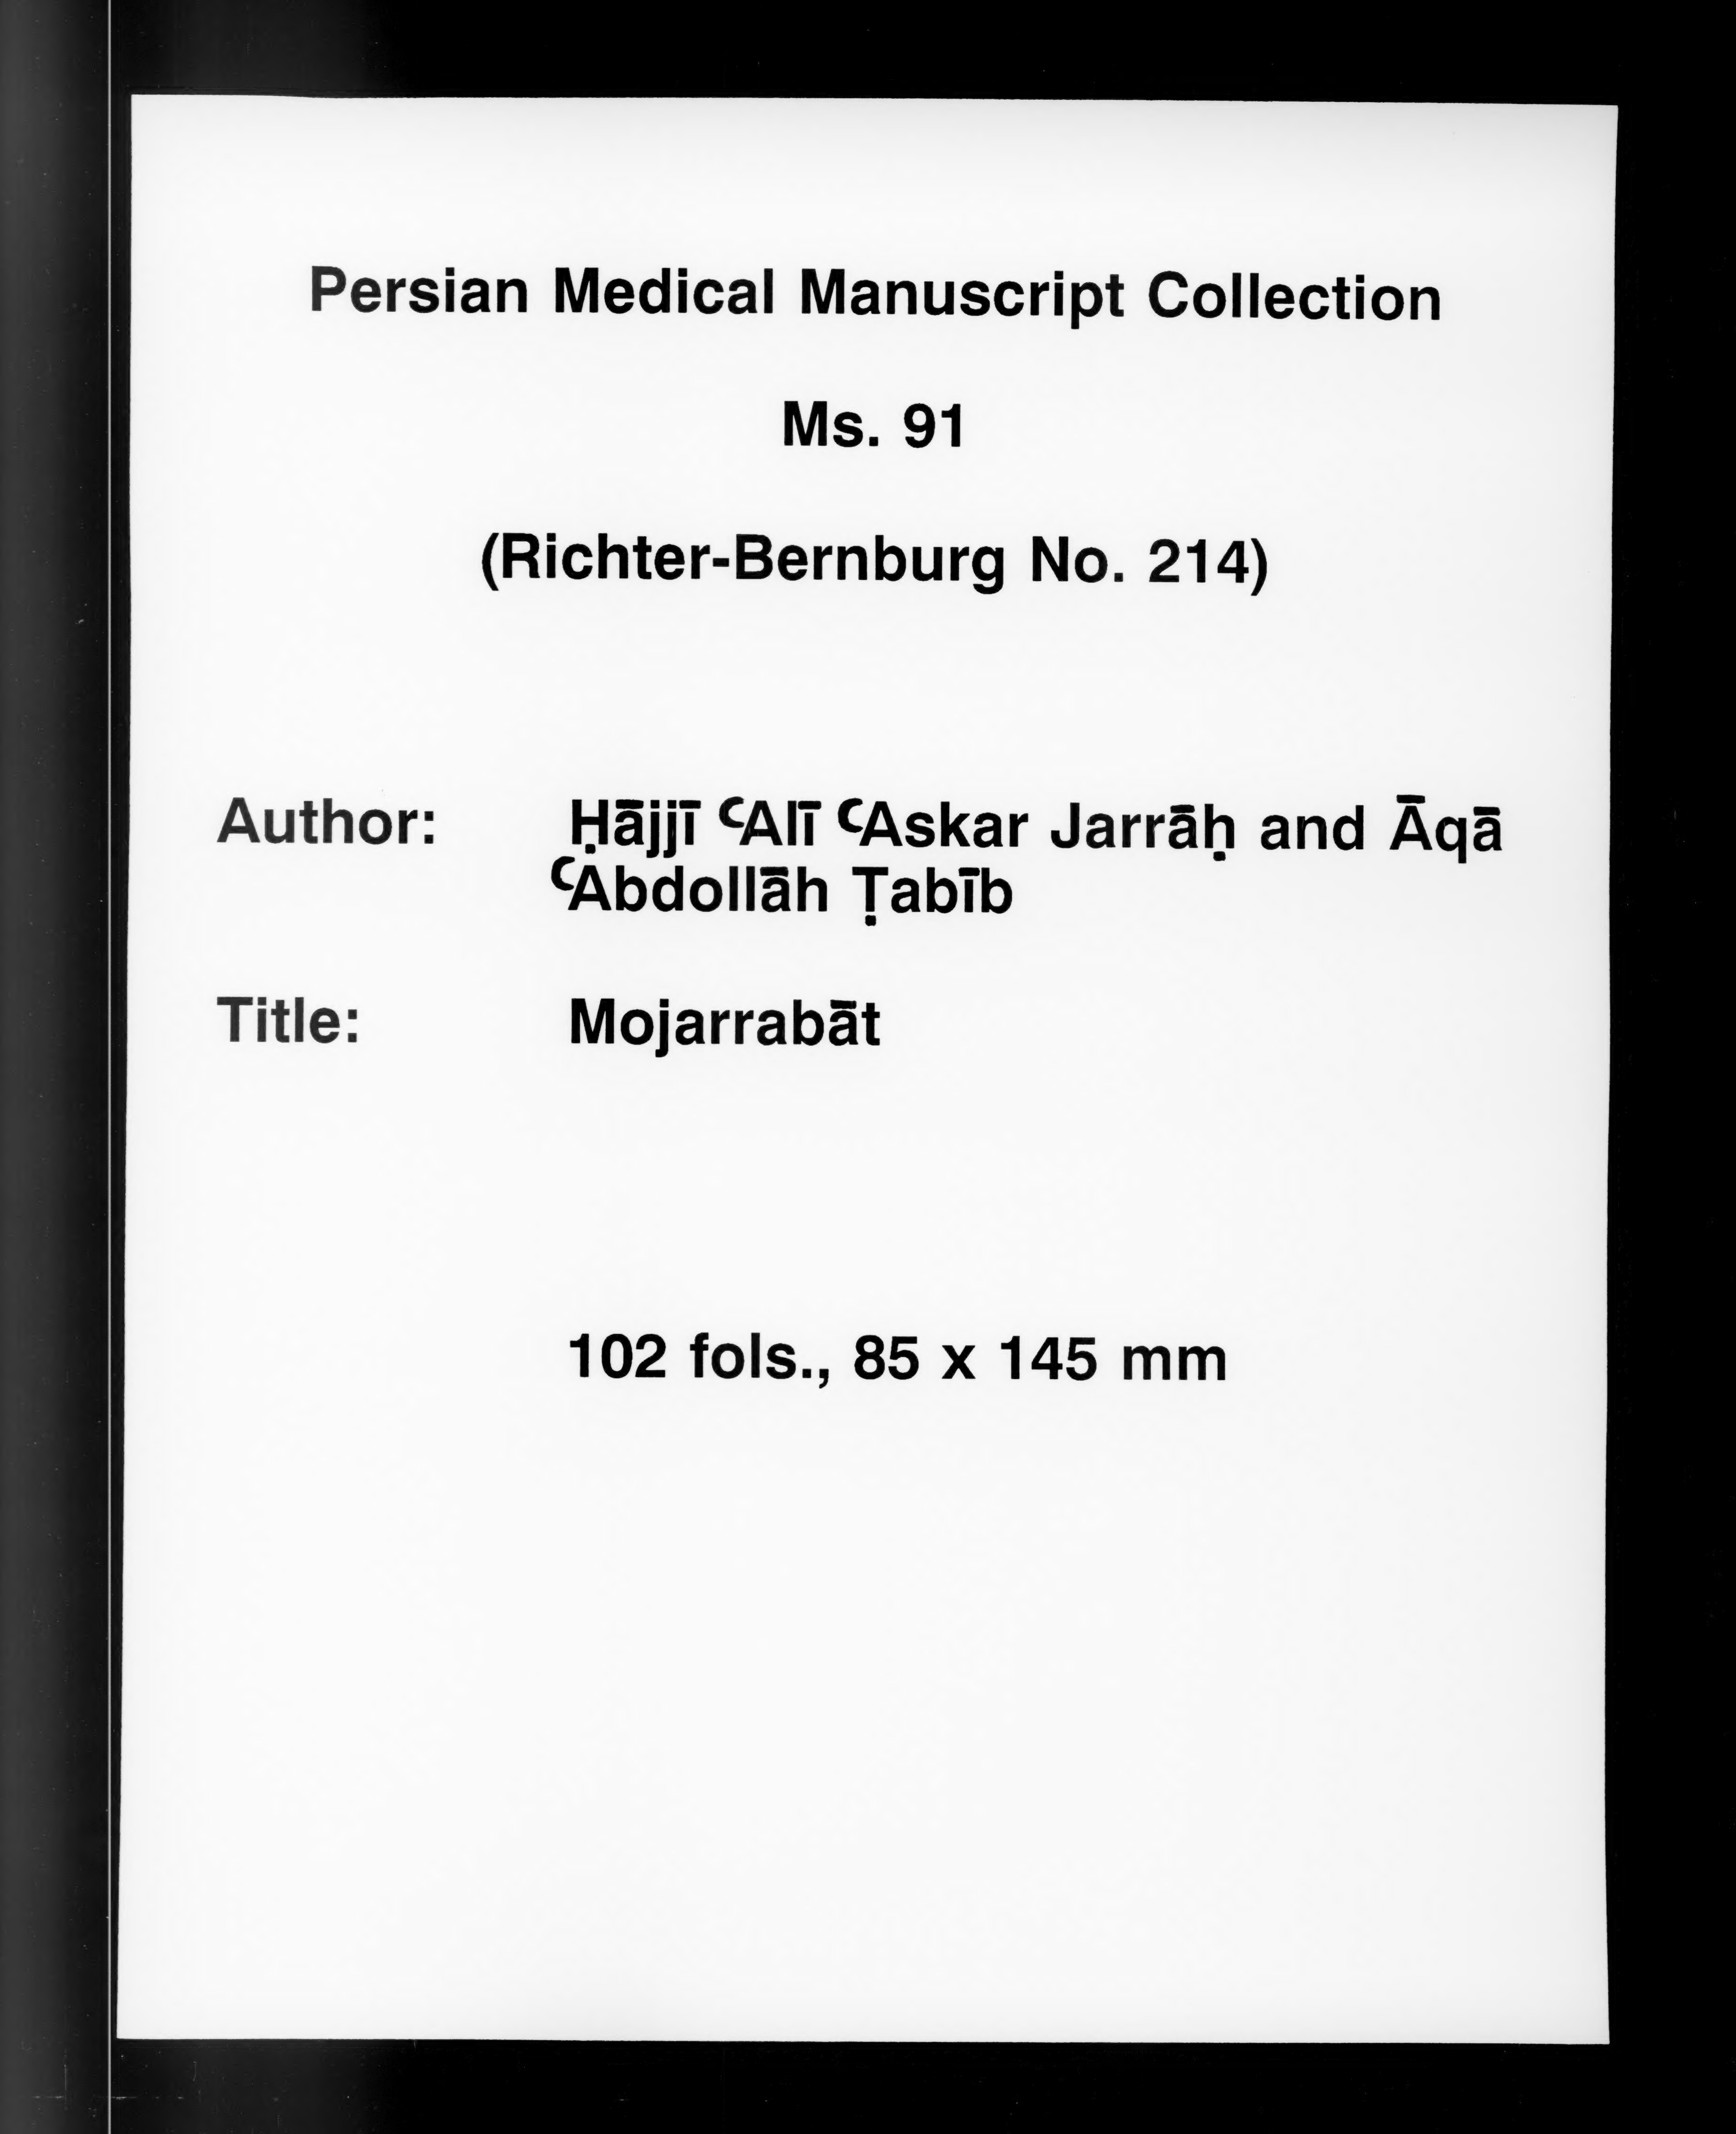 Persian Medical Manuscript Collection
Ms. 91
(Richter-Bernburg No. 214)
Author: Ḥājjī ʿAlī ʿAskar Jarrāḥ and Āqā
ʿAbdollāh Ṭabīb
Title: Mojarrabāt
102 fols., 85 x 145 mm